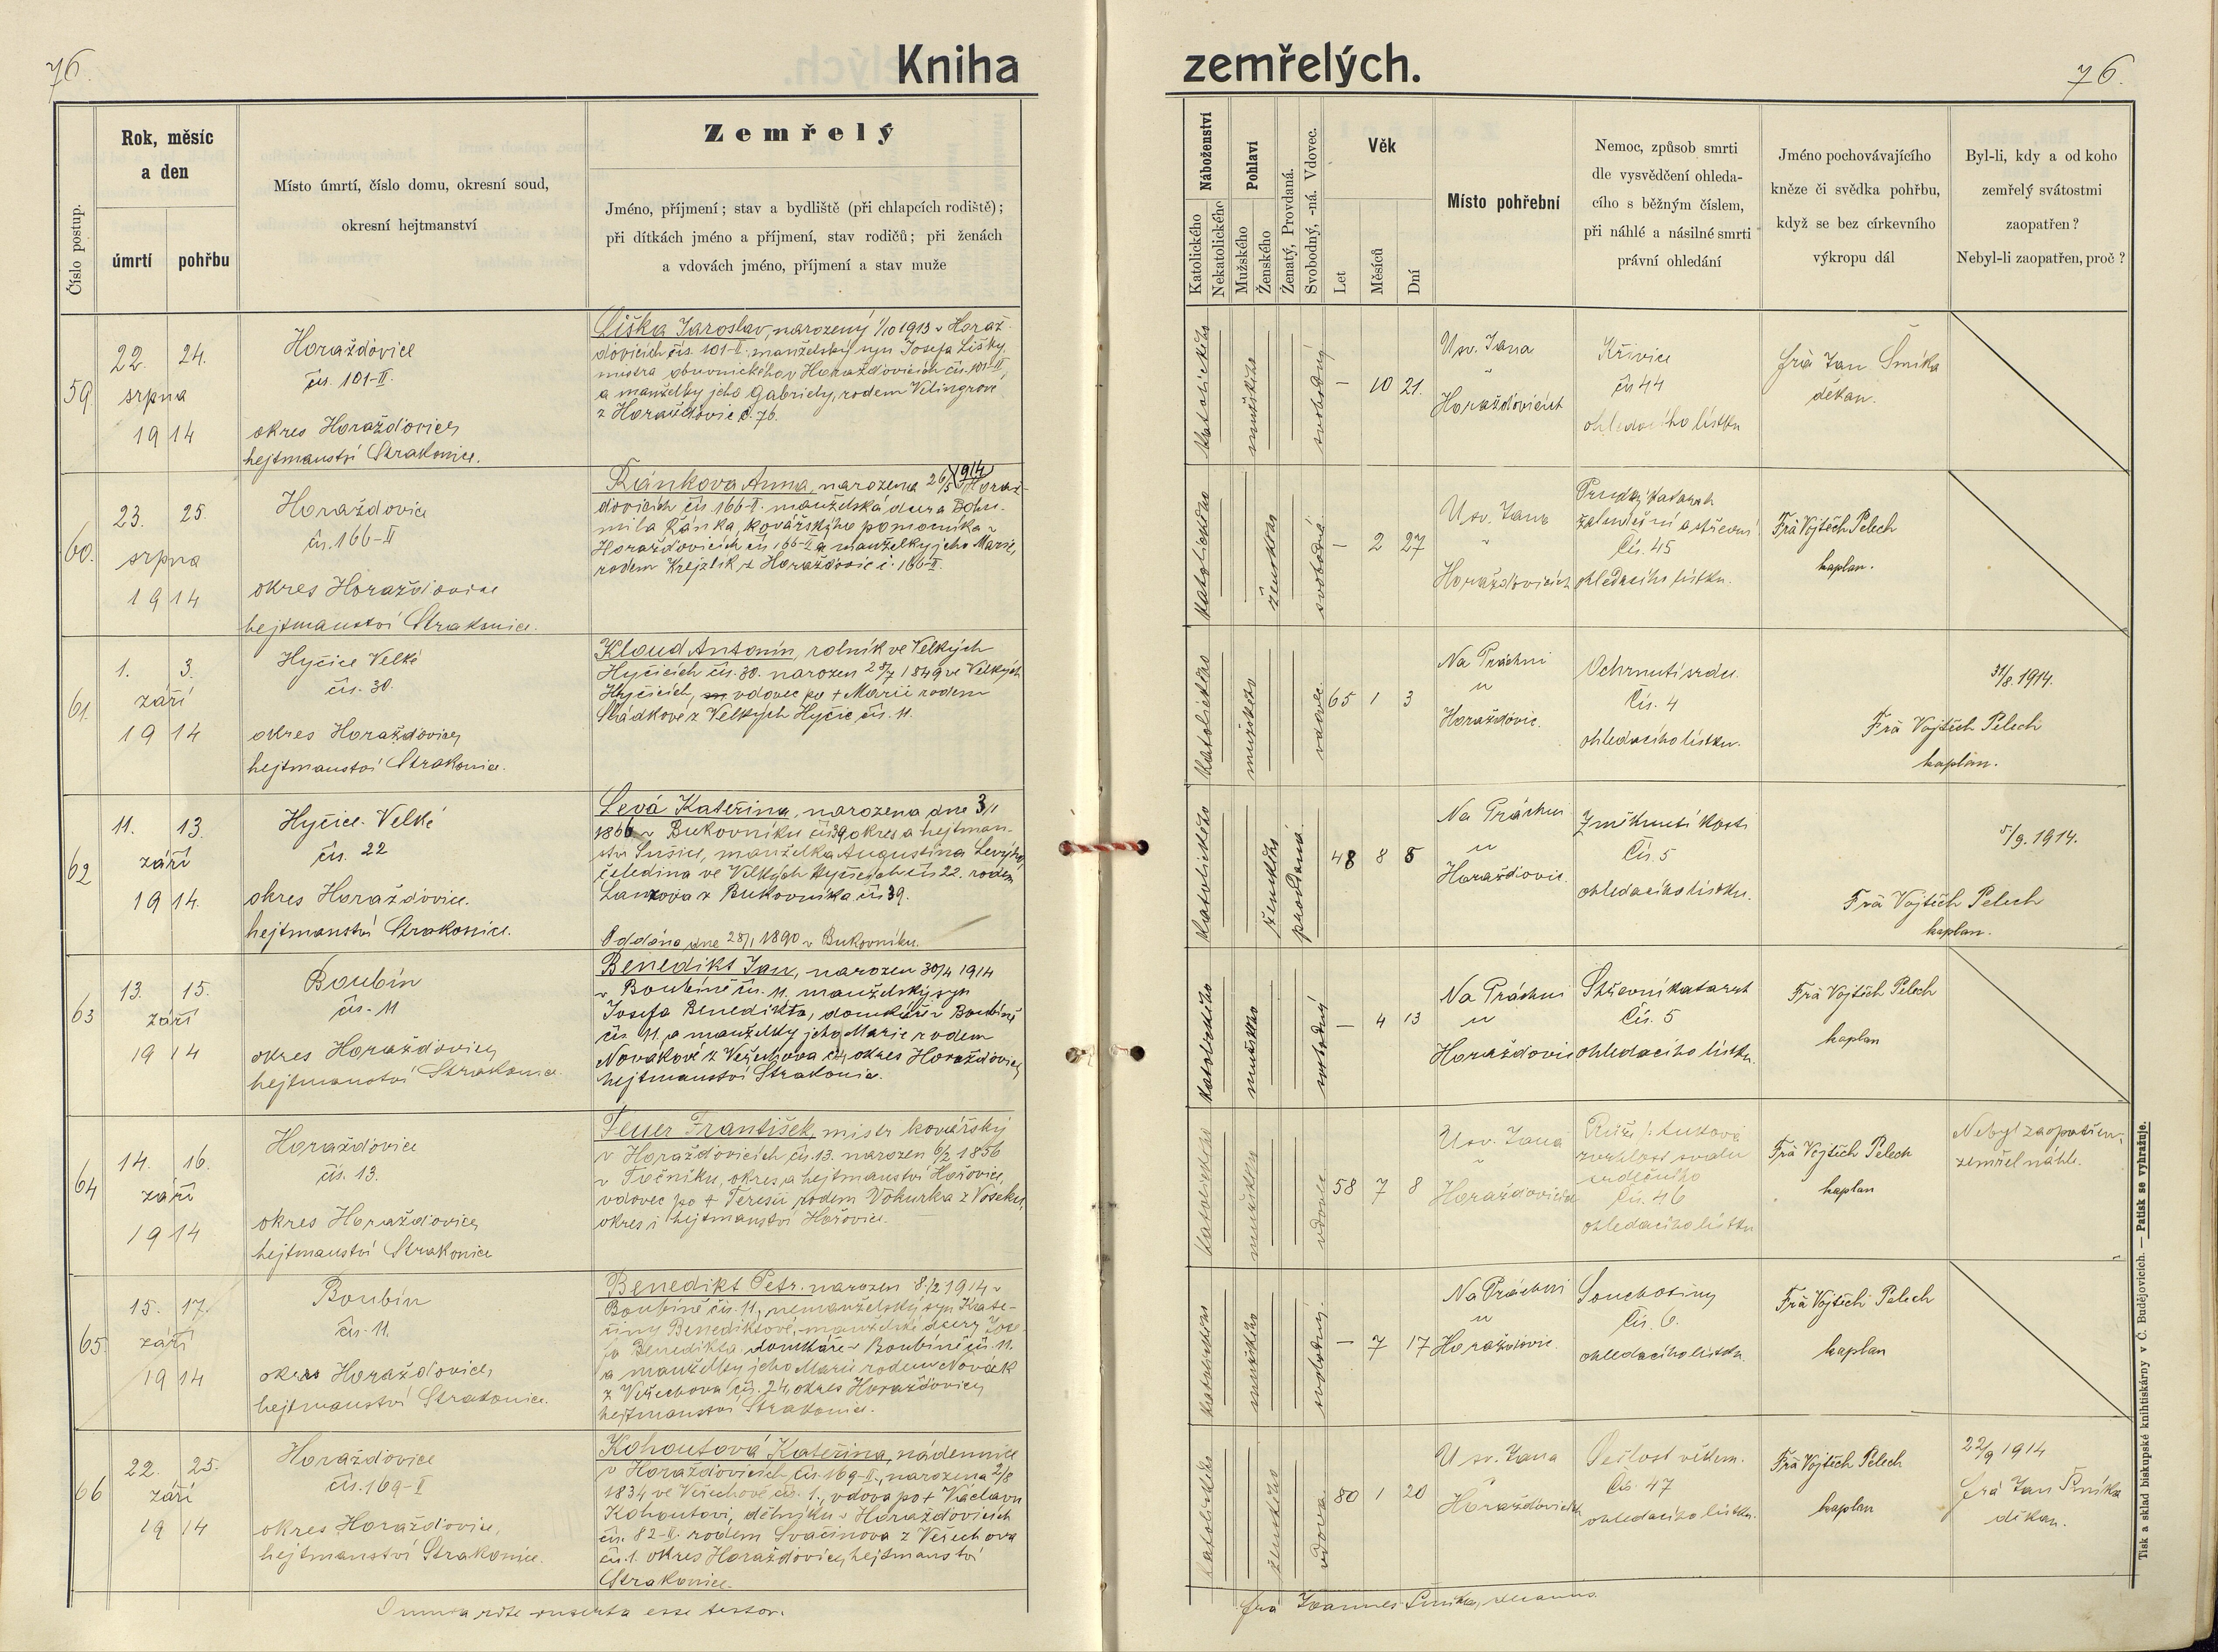 76.
Kniha
zemřelých.
76.
Číslo postup.
Rok, měsíc
a den
úmrtí
pohřbu
Místo úmrtí, číslo domu, okresní soud,
okresní hejtmanství
Zemřelý
Jméno, příjmení; stav a bydliště (při chlapcích rodiště);
při dítkách jméno a příjmení, stav rodičů; při ženách
a vdovách jméno, příjmení a stav muže
Náboženství
Katolického
Nekatolického
Pohlaví
Mužského
Ženského
Ženatý, Provdaná.
Svobodný, -ná. Vdovec.
Věk
Let
Měsíců
Dní
Místo pohřební
Nemoc, způsob smrti
dle vysvědčení ohleda-
cího s běžným číslem,
při náhlé a násilné smrti
právní ohledání
Jméno pochovávajícího
kněze či svědka pohřbu,
když se bez církevního
výkropu dál
Byl-li, kdy a od koho
zemřelý svátostmi
zaopatřen?
Nebyl-li zaopatřen, proč?
59
22. 24.
srpna
1914
Horažďovice
čís. 101-II.
okres Horažďovice,
hejtmanství Strakonice.
Liška Jaroslav, narozený 1/10 1913 v Horaž-
ďovicích čís. 101-II. manželský syn Josefa Lišky,
mistra obuvnického v Horažďovicích čís. 101-II,
a manželky jeho Gabriely, rodem
z Horažďovic č. 76.
katolického
mužského
svobodný
— 10 21.
U sv. Jana
v
Horažďovicích
Křivice
čís 44
ohledacího lístku
frà Jan Šmíka
děkan.
60.
23. 25.
srpna
1914
Horažďovice
čís. 166-II
okres Horažďovice
hejtmanství Strakonice.
Řánkova Anna, narozena 26/5 1914 v Horaž-
ďovicích čís 166-II. manželská dcera Bohu-
mila Řánka, kovářského pomocníka v
Horažďovicích čís 166-II a manželky jeho Marie,
rodem Krejzlík z Horažďovic č. 166-II.
katolického
ženského
svobodná
— 2 27
U sv. Jana
v
Horažďovicích
Prudký katarrh
žaludeční a střevní
Čís. 45
ohledacího lístku.
Frà Vojtěch Pelech
kaplan.
61.
1. 3.
září
1914
Hyčice Velké
čís. 30.
okres Horažďovice,
hejtmanství Strakonice.
Kloud Antonín, rolník ve Velkých
Hyčicích čís. 30. narozen 28/7 1849 ve Velkých
Hyčicích, vdovec po + Marii rodem
z Velkých Hyčic čís. 11.
katolického
mužského
vdovec
65 1 3
Na Práchni
u
Horažďovic.
Ochrnutí srdce.
Čís. 4
ohledacího lístku.
31/8. 1914.
Frà Vojtěch Pelech
kaplan.
62
11. 13.
září
1914.
Hyčice Velké
čís. 22
okres Horažďovice.
hejtmanství Strakonice.
Levá Kateřina, narozena dne 3/1
1866 v Bukovníku čís 39 okres a hejtman-
ství Sušice, manželka Augustina Levého,
čeledína ve Velkých Hyčicích čís 22. rodem
z Bukovníka čís 39.
Oddána dne 28/1 1890 v Bukovníku.
katolického
ženského
provdaná.
48 8 8
Na Práchni
u
Horažďovic.
Změknutí kostí
Čís. 5
ohledacího lístku.
5/9. 1914.
Frà Vojtěch Pelech
kaplan.
63
13. 15.
září
1914
Boubín
čís. 11
okres Horažďovice,
hejtmanství Strakonice.
Benedikt Jan, narozen 30/4 1914
v Boubíně čís. 11. manželský syn
Josefa Benedikta, domkáře v Boubíně
čís. 11. a manželky jeho Marie rodem
Novákové z Veřechova okres Horažďovice,
hejtmanství Strakonice.
katolického
mužského
svobodný
— 4 13
Na Práchni
u
Horažďovic
Střevní katarrh
Čís. 5
ohledacího lístku.
Frà Vojtěch Pelech
kaplan
64
14. 16.
září
1914
Horažďovice
čís. 13.
okres Horažďovice,
hejtmanství Strakonice
Feuer František, mistr kovářský
v Horažďovicích, čís. 13. narozen 6/2 1856
v Točníku, okres a hejtmanství Hořovice,
vdovec po + Teresii rodem Vohurka z Voseku,
okres i hejtmanství Hořovice.
katolického
mužského
vdovec
58 7 8
U sv. Jana
v
Horažďovicích
svalu
srdečního
Čís. 46
ohledacího lístku
Frà Vojtěch Pelech
kaplan
Nebyl zaopatřen,
zemřel náhle.
65.
15. 17.
září
1914
Boubín
čís. 11.
okres Horažďovice,
hejtmanství Strakonice.
Benedikt Petr. narozen 8/2 1914 v
Boubíně čís. 11, nemanželský syn Kate-
řiny Benediktové, manželské dcery Jose-
fa Benedikta domkáře v Boubíně čís. 11.
a manželky jeho Marie rodem Novák
z Veřechova čís. 24, okres Horažďovice,
hejtmanství Strakonice.
katolického
mužského
svobodný.
— 7 17
Na Práchni
u
Horažďovic.
Souchotiny
Čís. 6.
ohledacího lístku.
Frà Vojtěch Pelech
kaplan
66
22. 25.
září
1914
Horažďovice
čís. 169-II
okres Horažďovice,
hejtmanství Strakonice.
Kohoutová Kateřina, nádennice
v Horažďovicích, čís. 169-II., narozena 2/8
1834 ve Veřechově čís. 1., vdova po + Václavu
Kohoutovi, dělníku v Horažďovicích
čís. 82-II. rodem Svačinova z Veřechova
čís. 1. okres Horažďovice, hejtmanství
Strakonice.
katolického
ženského
vdova
80 1 20
U sv. Jana
v
Horažďovicích
Sešlost věkem.
Čís. 47
ohledacího lístku.
Frà Vojtěch Pelech
kaplan
22/9 1914
frà Jan Šmíka
děkan.
Omnia rite inserta esse testor.
frà Joannes Šmíka, decanus.
Tisk a sklad biskupské knihtiskárny v Č. Budějovicích. — Patisk se vyhražuje.